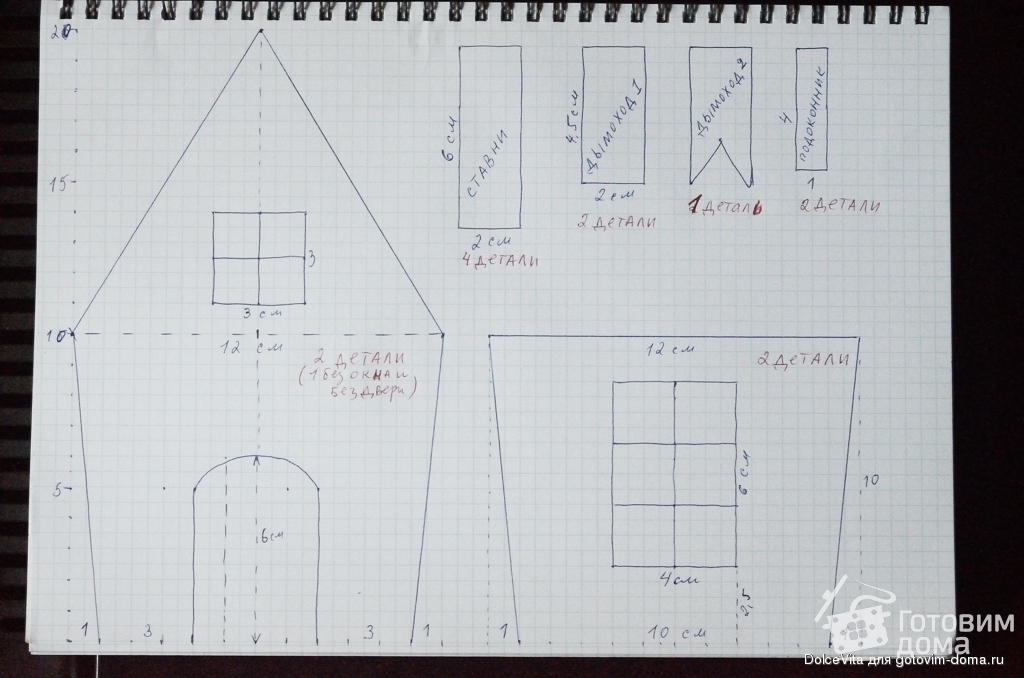 20
15
10
5
3
3 см
12 см
2 детали
(1 без окна и
без двери)
6 см
1
3
3
1
6 см
ставни
2 см
4 детали
4,5 см
дымоход 1
2 см
2 детали
дымоход 2
1 деталь
4
подоконник
1
2 детали
12 см
2 детали
6 см
10
4 см
2,5
1
10 см
Готовим
дома
DolceVita для gotovim-doma.ru